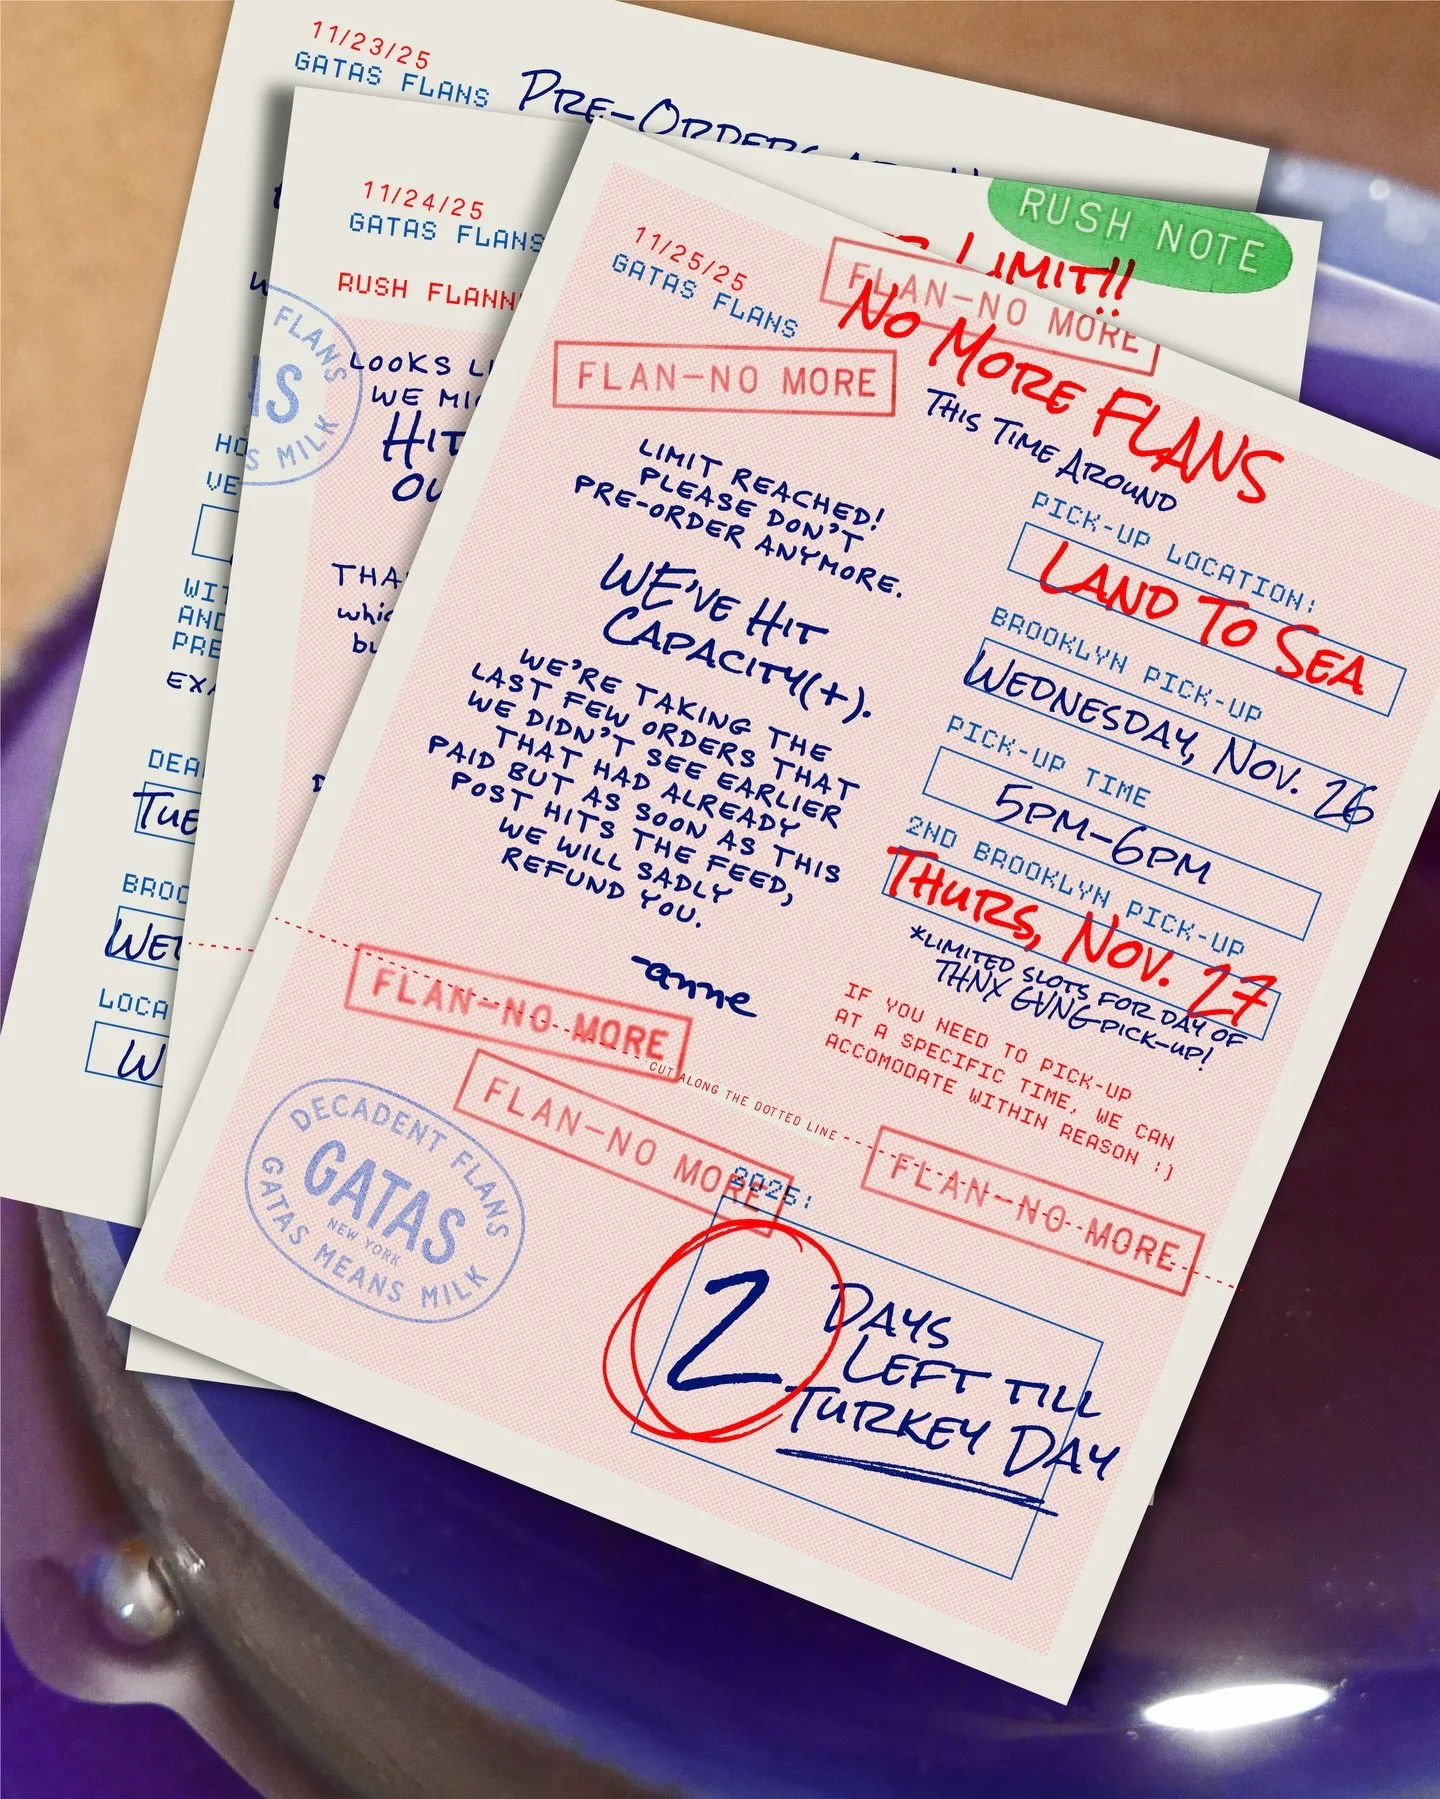 11/23/25
GATAS FLANS
PRE-ORDERS
11/24/25
GATAS FLANS
RUSH NOTE
LIMIT!!
RUSH FLANN
FLANS
MILK
LOOKS
WE
HIT
11/25/25
GATAS FLANS
FLAN-NO MORE
FLAN-NO MORE
NO MORE FLANS
THIS TIME AROUND
LIMIT REACHED!
PLEASE DON'T
PRE-ORDER ANYMORE.
WE'VE HIT
CAPACITY(+).
WE'RE TAKING THE
LAST FEW ORDERS THAT
WE DIDN'T SEE EARLIER
THAT HAD ALREADY
PAID BUT AS SOON AS THIS
POST HITS THE FEED,
WE WILL SADLY
REFUND YOU.
-anne
PICK-UP LOCATION:
LAND TO SEA
BROOKLYN PICK-UP
WEDNESDAY, NOV. 26
PICK-UP TIME
5PM-6PM
2ND BROOKLYN PICK-UP
THURS, NOV. 27
*LIMITED SLOTS FOR DAY OF
THNX GVNG PICK-UP!
IF YOU NEED TO PICK-UP
AT A SPECIFIC TIME, WE CAN
ACCOMODATE WITHIN REASON :)
FLAN-NO MORE
CUT ALONG THE DOTTED LINE
FLAN-NO MORE
FLAN-NO MORE
DECADENT FLANS
GATAS
NEW YORK
GATAS MEANS MILK
2025:
2 DAYS
LEFT TILL
TURKEY DAY